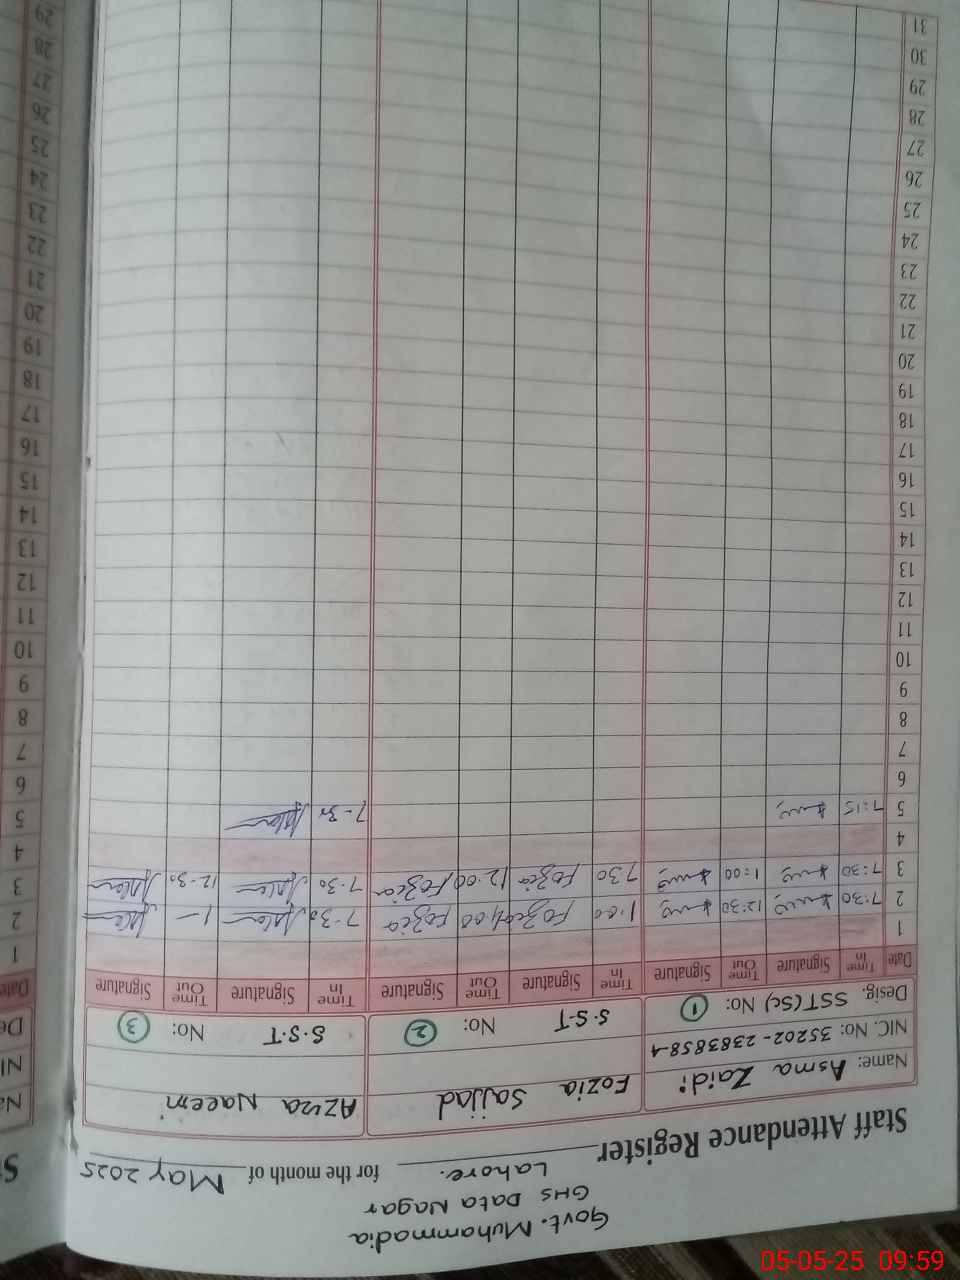 Govt. Muhammadia
GHS Data Nagar
Staff Attendance Register Lahore. for the month of May 2025
Name: Asma Zaidi Fozia Sajjad Azra Naeem
NIC. No: 35202-2383858-1
Desig. SST(Sc) No: 1 S.S.T No: 2 S.S.T No: 3
Date Time In Signature Time Out Signature Time In Signature Time Out Signature Time In Signature Time Out Signature
1
2 7:30 12:30 1.00 Fozia 1.00 Fozia 7-30 1-
3 7:30 1:00 7.30 Fozia 12.00 Fozia 7-30 12-30
4
5 7:15 7-30
6
7
8
9
10
11
12
13
14
15
16
17
18
19
20
21
22
23
24
25
26
27
28
29
30
31
Date
1
2
3
4
5
6
7
8
9
10
11
12
13
14
15
16
17
18
19
20
21
22
23
24
25
26
27
28
29
05-05-25 09:59